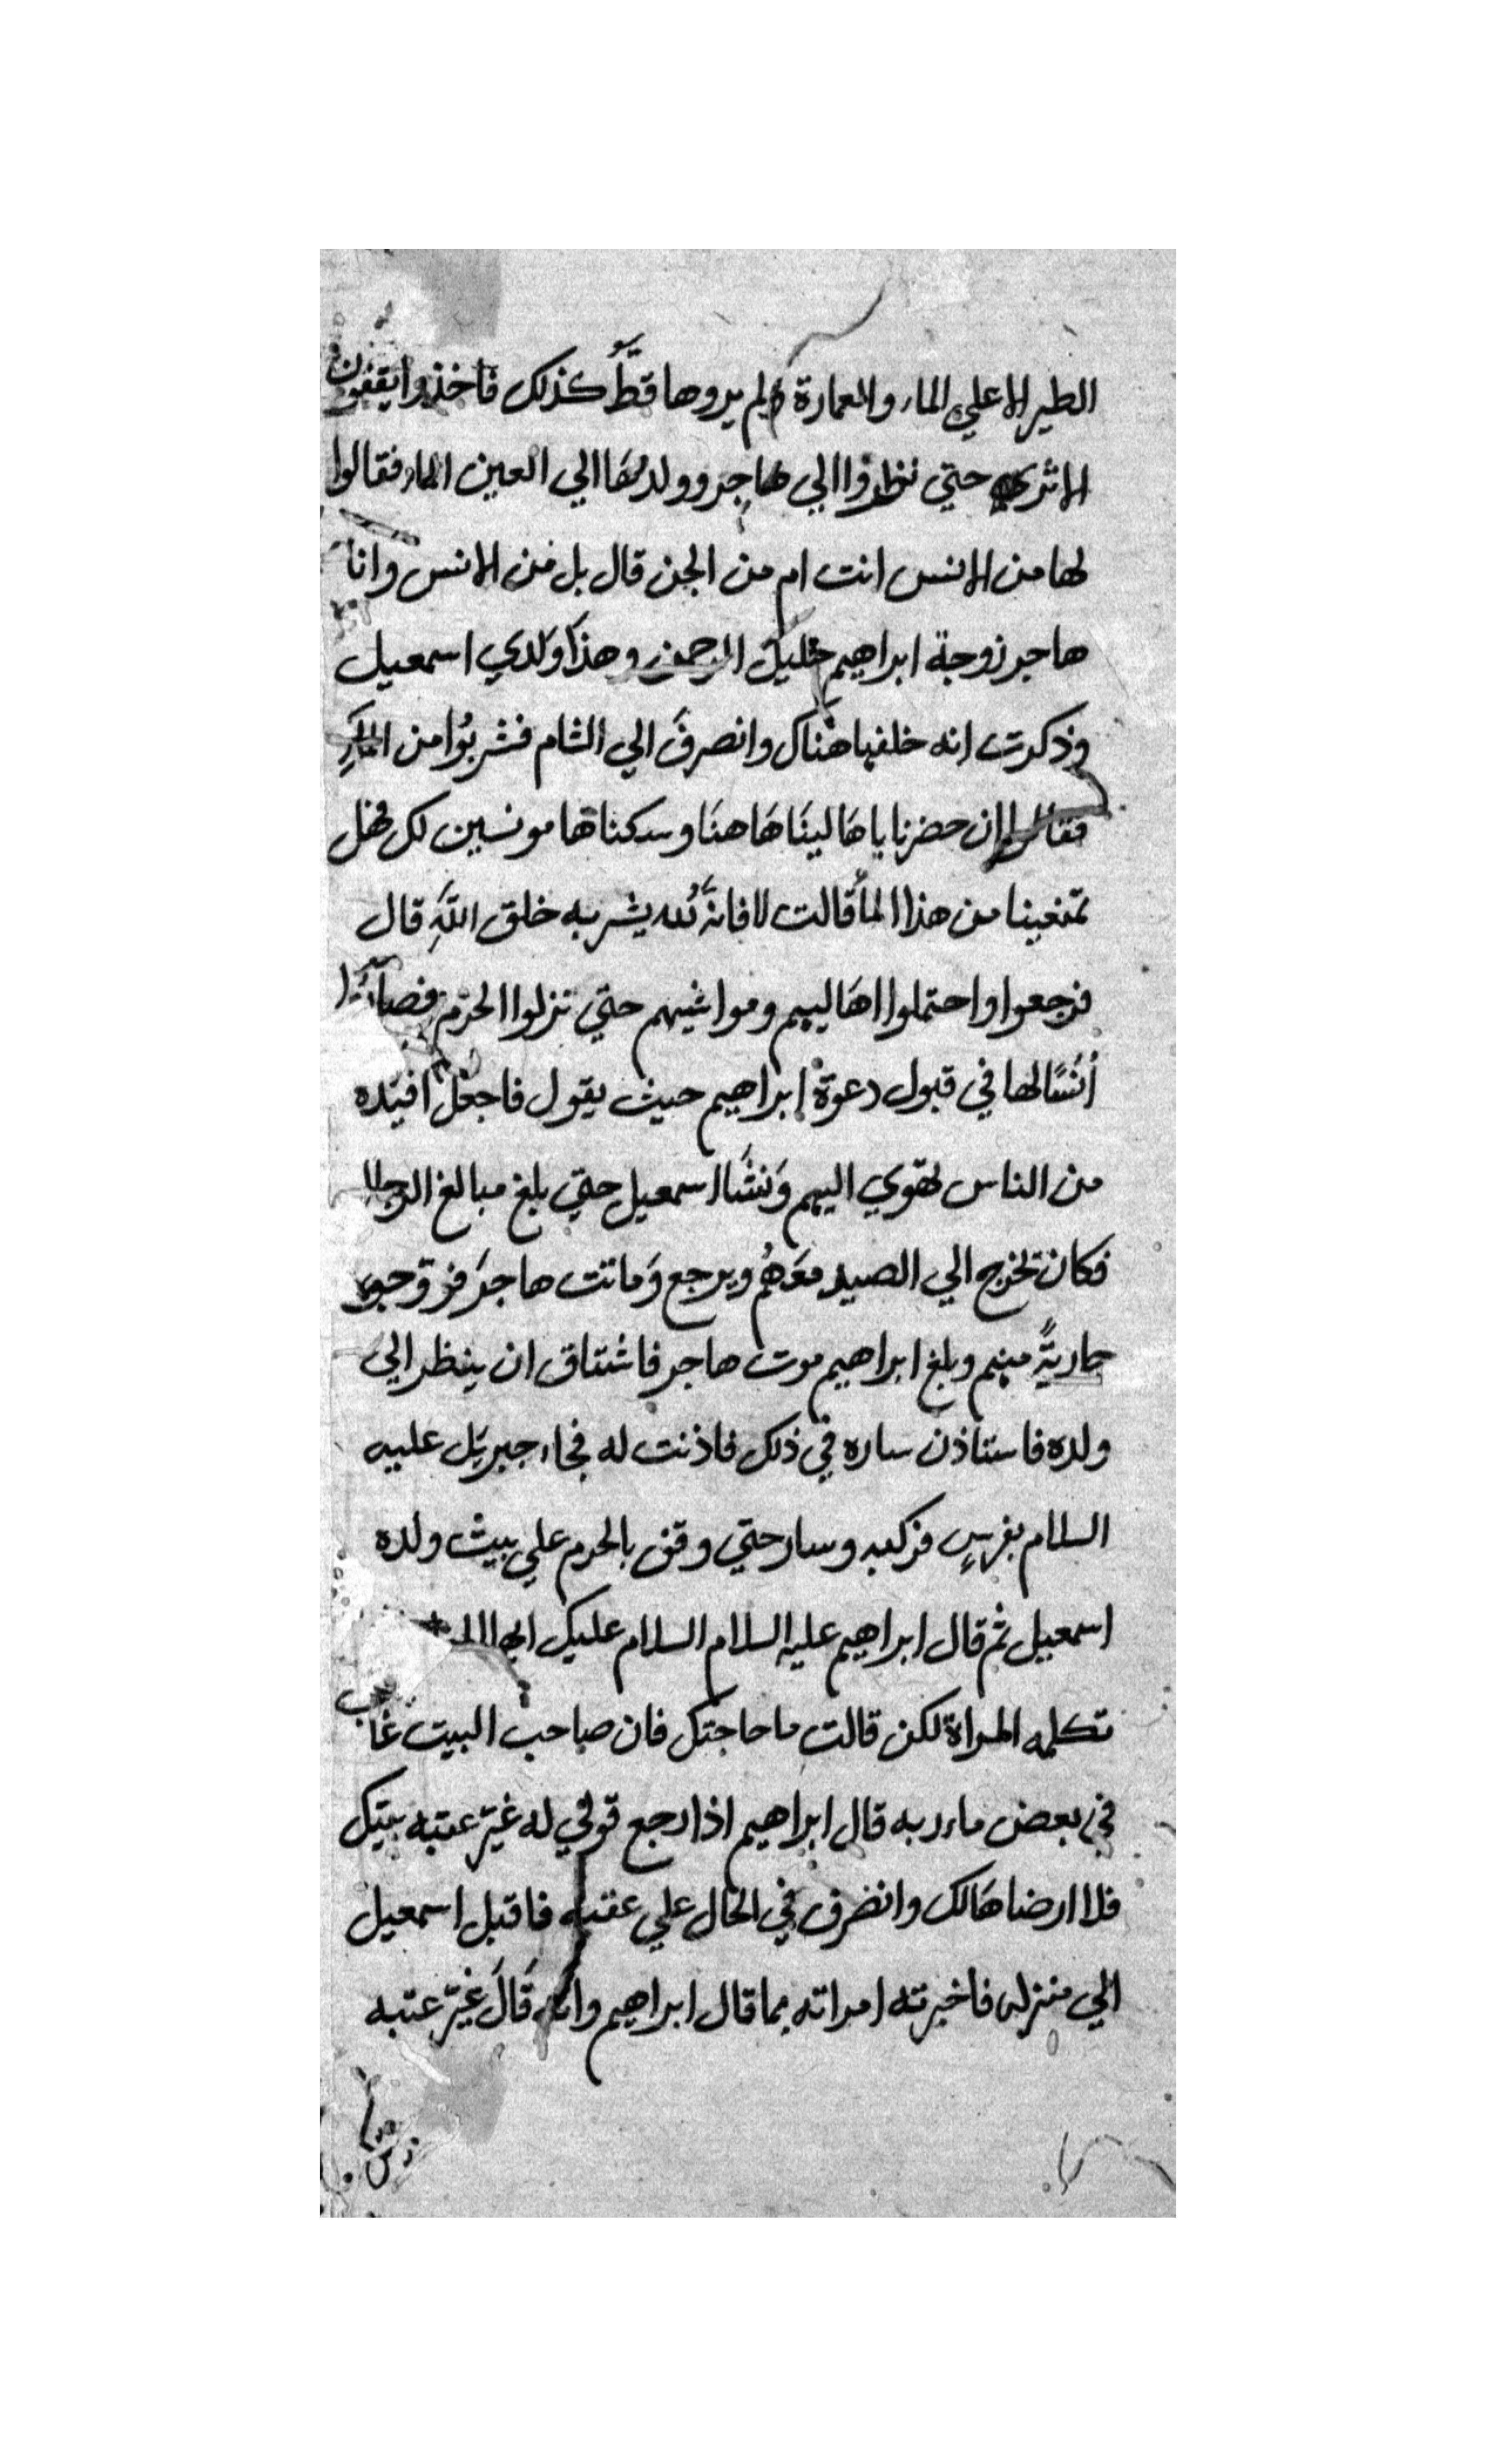 الطير الا علي الماء والعمارة ولم يروها قطُّ كذلك فاخذوا يقفون
الاثري حتي نظروا الي هاجر وولدها الي العين الماء فقالوا
لها من الانس انت ام من الجن قال بل من الانس وانا
هاجر زوجة ابراهيم خليل الرحمن وهذا ولدي اسمعيل
وذكرت انه خلفها هناك وانصرفَ الي الشام فشربُوا من الماءِ
فقالوا ان حضرنا باهَالينَا هَاهنَا وسكناها مونسين لك فهل
تمنعينا من هذا الماء قالت لا فانهَ لله يشربه خلق اللهِ قال
فرجعوا واحتملوا اهَاليهم ومواشيهم حتي نزلوا الحرم فصاروا
أنسًا لها في قبول دعوة ابراهيم حيث يقول فاجعل افئده
من الناس تهوي اليهم وَنشَا اسمعيل حتي بلغ مبالغ الرجال
فكان تخرج الي الصيد معَهُم ويرجع وَماتت هاجرَ فزوجوه
جاريةً منهم وبلغ ابراهيم موت هاجر فاشتاق ان ينظر الي
ولده فاستاذن ساره في ذلك فاذنت له فجاء جبريل عليه
السلام بفرسٍ فركبه وسار حتي وقف بالحرم علي بيت ولده
اسمعيل ثم قال ابراهيم عليه السلام السلام عليك
تكلمه المراة لكن قالت ما حاجتك فان صاحب البيت غايب
في بعض ماربه قال ابراهيم اذا رجع قولي له غيّر عتبه بيتك
فلا ارضاهَا لك وانصرف في الحال علي عقبه فاقبل اسمعيل
الي منزله فاخبرته امراته بما قال ابراهيم وانه قَالَ غيّر عتبه